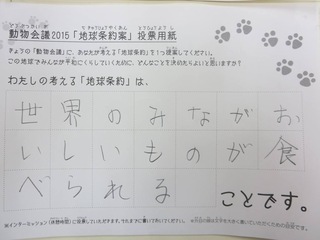 動物会議2015「地球条約案」投票用紙
きょうの「動物会議」に、あなたが考える「地球条約」を1つ提案してください。
この地球でみんなが平和にくらしていくために、どんなことを決めたらよいと思いますか?
わたしの考える「地球条約」は、
世界のみながお
いしいものが食
べられる
ことです。